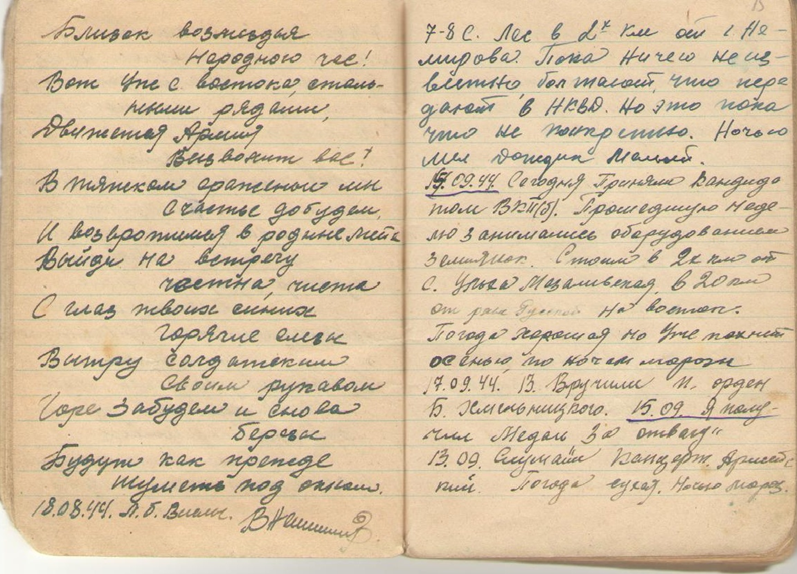 Близок возмездья
Народного час!
Вот уже с востока, сталь-
ными рядами,
Движется Армия
Вызволит вас!
В тяжком сраженьи мы
счастье добудем,
И возвротимся в родные места
Выйди на встречу
честна, чиста
С глаз твоих синих
горячие слезы
Вытру солдатским
своим рукавом
Горе забудем и снова
березы
Будут как прежде
шуметь под окном.
18.08.44. Л.б.
7-8 С. Лес в 2х км от г Не-
мирова. Пока ничего не из-
вестно, болтают, что пере
дают в НКВД. Но это пока
что не конкретно. Ночью
шел дождик малый.
15.09.44 Сегодня Приняли кандида
том ВКП(б). Прошедшую неде-
лю занимались оборудованием
землянок. Стоим в 2х км от
с. Улька в 20 км
от на восток.
Погода хорошая но уже пахнет
осенью, по ночам морозы
17.09.44. В. Вручили п. орден
Б. Хмельницкого. 15.09. Я полу-
чил Медаль "За отвагу"
13.09. Слушали концерт Армейс
кий. Погода сухая, ночью мороз.